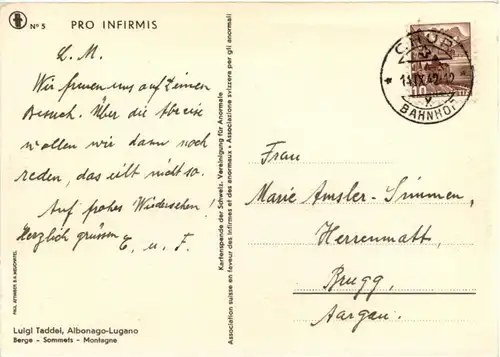 Nº 5 PRO INFIRMIS
L. M.
Wir freuen uns auf Deinen
Besuch. Über die Abreise
wollen wir dann noch
reden, das eilt nicht so.
Auf frohes Wiedersehen!
Herzlich grüssen E. u. F.
Luigi Taddei, Albonago-Lugano
Berge - Sommets - Montagne
Kartenspende der Schweiz. Vereinigung für Anormale
Association suisse en faveur des infirmes et des anormaux • Associazione svizzera per gli anormali
CHUR
BAHNHOF
10
Frau
Marie Amsler-Simmen,
Herrenmatt,
Brugg,
Aargau.